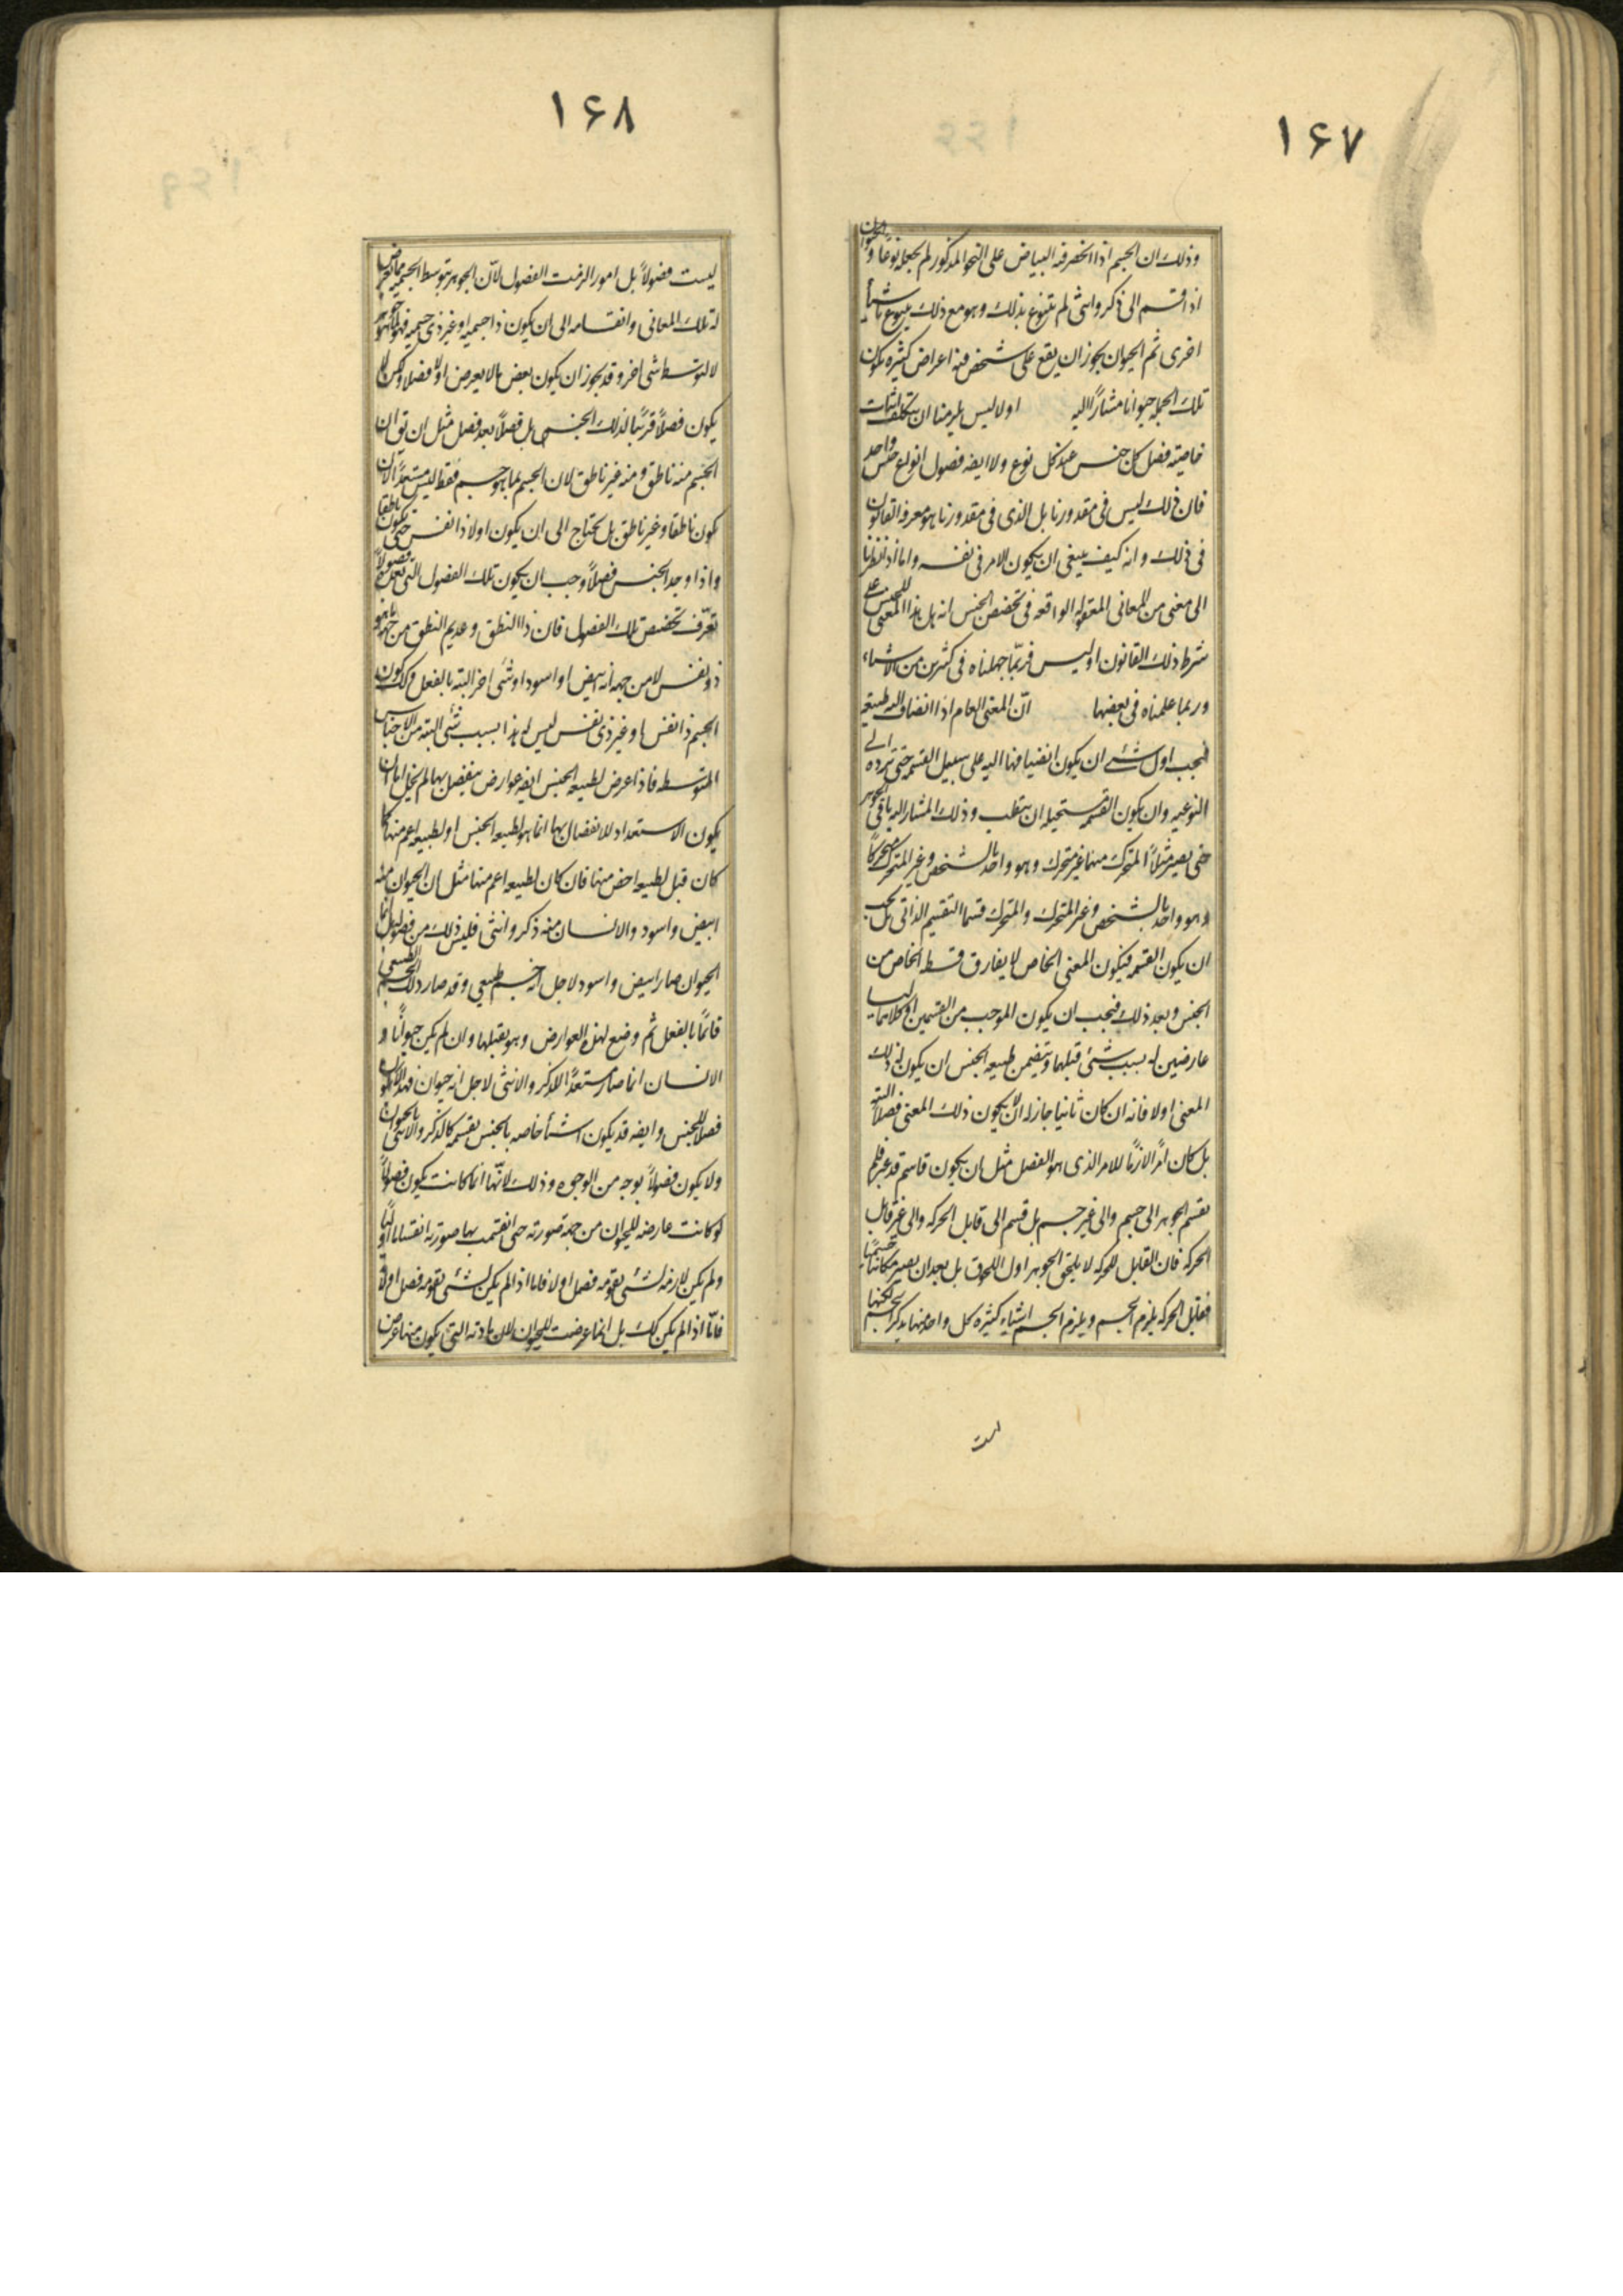 ١۶٧
وذلك ان الجسم اذا انحصر فيه البياض على النحو المذكور لم يجعله نوعا والحيوان
اذا قسم الى ذكر وانثى لم يتنوع بذلك وهو مع ذلك يتنوع باشيأ
اخرى ثم الحيوان يجوز ان يقع على شخص فيه اعراض كثيره يكون
تلك الجمله حيوانا مشارًا اليه اولا ليس يلزمنا ان نتكلف اثبات
خاصيته فصل كل جنس عند كل نوع ولا ايضه فصول انواع جنس واحد
فان ذلك ليس فى مقدورنا بل الذى فى مقدورنا هو معرفه القانون
فى ذلك وانه كيف ينبغى ان يكون الامر فى نفسه واما اذا نظرنا
الى معنى من المعانى المعقوله الواقعه فى تخصص الجنس انه هل هذا المعنى للجنس على
شرط ذلك القانون او ليس فربّما جهلناه فى كثير من الاشياء
وربما علمناه فى بعضها انّ المعنى العام اذا انضاف اليه طبيعه
فيجب اول شئ ان يكون انضيافها اليه على سبيل القسمه حتى ترده الى
النوعيه وان يكون القسمه مستحيله ان ينقلب وذلك المشار اليه باقى الجوهر
حتى يصير مثلاً المتحرك منهما غير متحرك وهو واحد بالشخص وغير المتحرك متحركًا
وهو واحد بالشخص وغير المتحرك والمتحرك قسما التقسيم الذاتى بل يجب
ان يكون القسمه فيكون المعنى الخاص لا يفارق قسطه الخاص من
الجنس وبعد ذلك فيجب ان يكون الموجب من القسمين او كلاهما ليسا
عارضين له بسبب شئ قبلهما ويتضمن طبيعه الجنس ان يكون له ذلك
المعنى اولا فانه ان كان ثانيا جاز له الّا يكون ذلك المعنى فصلاً البته
بل كان امرًا لازمًا للامر الذى هو الفصل مثل ان يكون قاسم قد غير فلم
يقسم الجوهر الى جسم والى غير جسم بل قسم الى قابل الحركه والى غير قابل
الحركه فان القابل للحركه لا يلحق الجوهر اول اللحوق بل بعد ان يصير مكانيا جسمًا
فقابل الحركه يلزم الجسم ويلزم الجسم اشياء كثيره كل واحد منها يذكر الجسم لكنها
ليست
١۶٨
ليست فصولاً بل امور الزمت الفصول لانّ الجوهر بتوسط الجسميه ما تعرض
له تلك المعانى وانقسامه الى ان يكون ذا جسميه او غير ذى جسميه فهو لما هو جوهر
لا لتوسط شى اخر وقد يجوز ان يكون بعض ما لا يعرض اولا فصلاً ولكن لا
يكون فصلاً قريبًا لذلك الجنس بل فصلاً بعد فصل مثل ان تق ان
الجسم منه ناطق ومنه غير ناطق لان الجسم بما هو جسم فقط ليس مستعدًّا لان
يكون ناطقا وغير ناطق بل يحتاج الى ان يكون اولا ذا نفس حتى يكون ناطقا
واذا وجد الجنس فصلاً وجب ان يكون تلك الفصول التى بعده فصولاً
تعرّف تخصص تلك الفصول فان ذا النطق وعديم النطق من جهه ما هو
ذو نفس لا من جهه انه ابيض او اسود او شئ اخر البته بالفعل وكك كون
الجسم ذا نفس او غير ذى نفس ليس له هذا بسبب شئ البته من الاجناس
المتوسطه فاذا عرض لطبيعه الجنس ايضه عوارض ينفصل بها لم يخل اما ان
يكون الاستعداد للانفصال بها انما هو لطبيعه الجنس او لطبيعه اعم منها كما
كان قبل لطبيعه اخص منها فان كان لطبيعه اعم منها مثل ان الحيوان منه
ابيض واسود والانسان منه ذكر وانثى فليس ذلك من فصوله بل انما
الحيوان صار ابيض واسود لاجل انه جسم طبيعى وقد صار ذلك الجسم الطبيعى
قائمًا بالفعل ثم وضع لهذه العوارض وهو يقبلها وان لم يكن حيوانًا و
الانسان انما صار مستعدًّا للذكر والانثى لاجل انه حيوان فهذا لا يكون
فصلاً للجنس وايضه قد يكون اشيأ خاصه بالجنس يقسمه كالذكر والانثى بالحيوان
ولا يكون فصولاً بوجه من الوجوه وذلك لانّها انما كانت يكون فصولاً
لو كانت عارضه للحيوان من جهة صورته حتى انقسمت بها صورته انقساما اوليًّا
ولم يكن لازمه لشئ يقومه فصل اولا فاما اذا لم يكن لشئ يقومه فصل اولا
فانّا اذا لم يكن كك بل انما عرضت للحيوان لان مادته التى يكون منها عرض